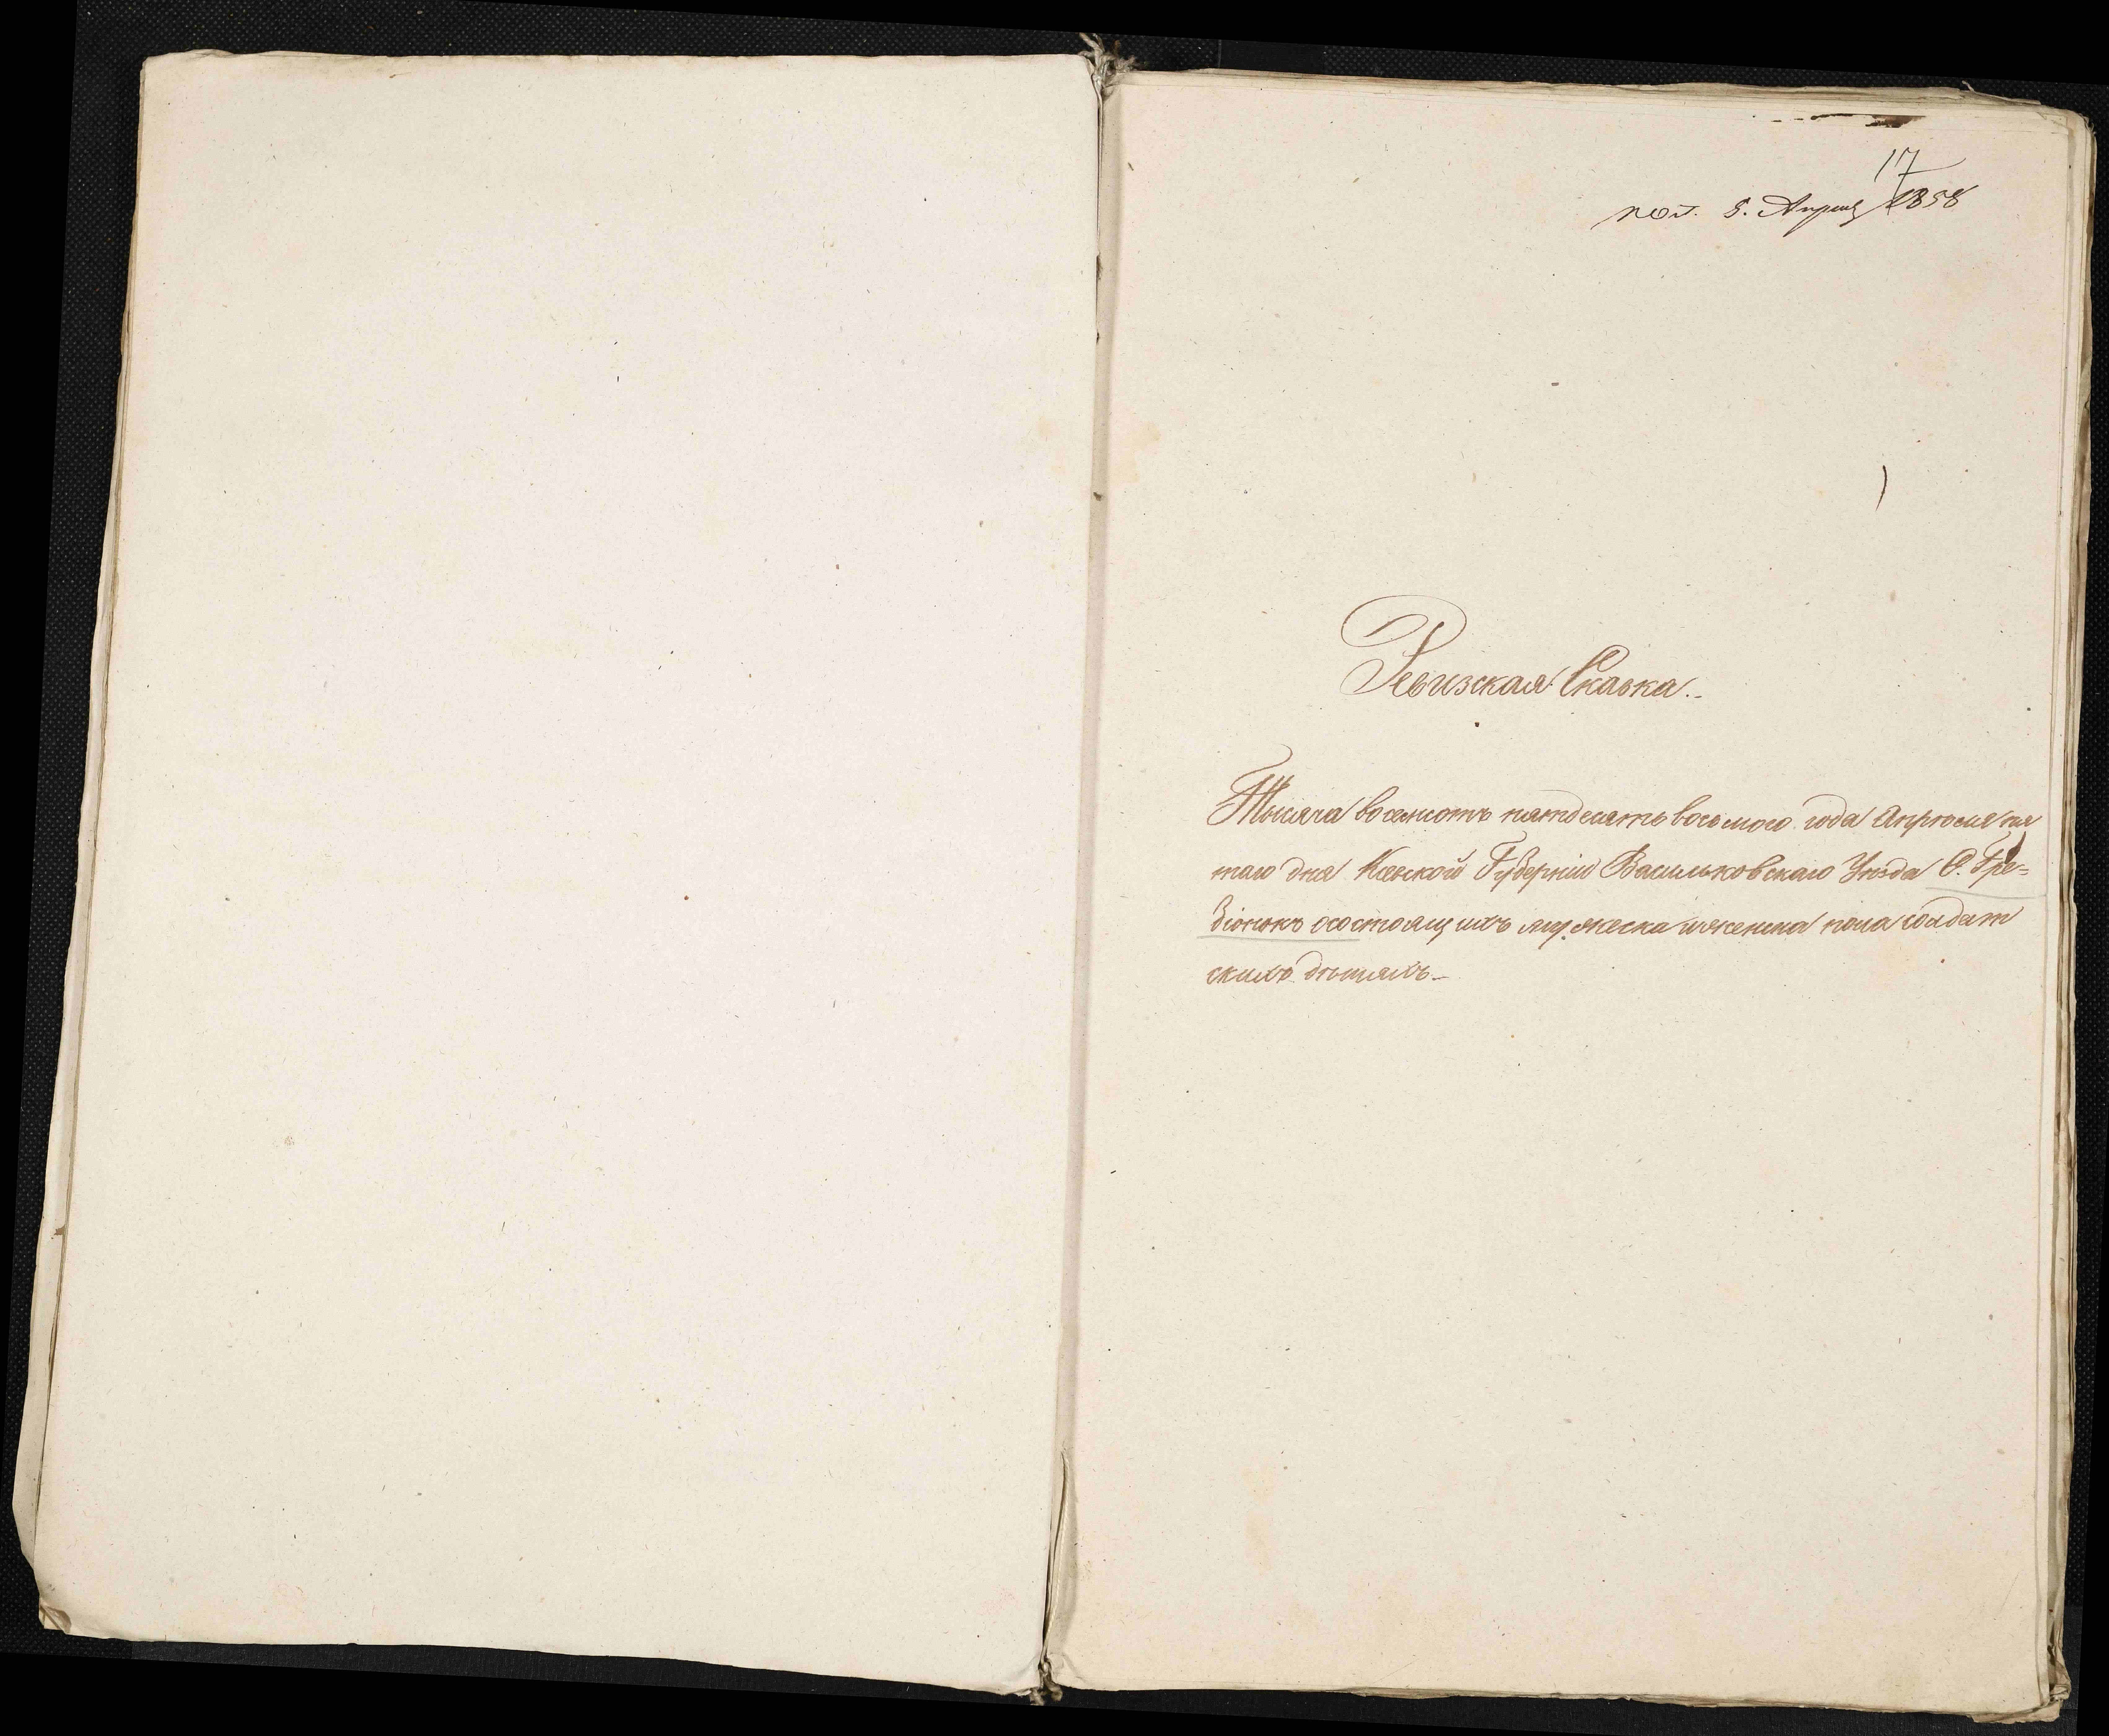 17
пол. 5. Апреля 1858
Ревизская Сказка.
Тысяча восемсотъ пятдесятъ восьмого года Апреля пя
таго дня Кіевской Губерніи Васильковскаго Уѣзда С. Гре=
біонокъ осостоящихъ мужеска иженска пола солдат
скихъ дѣтяхъ